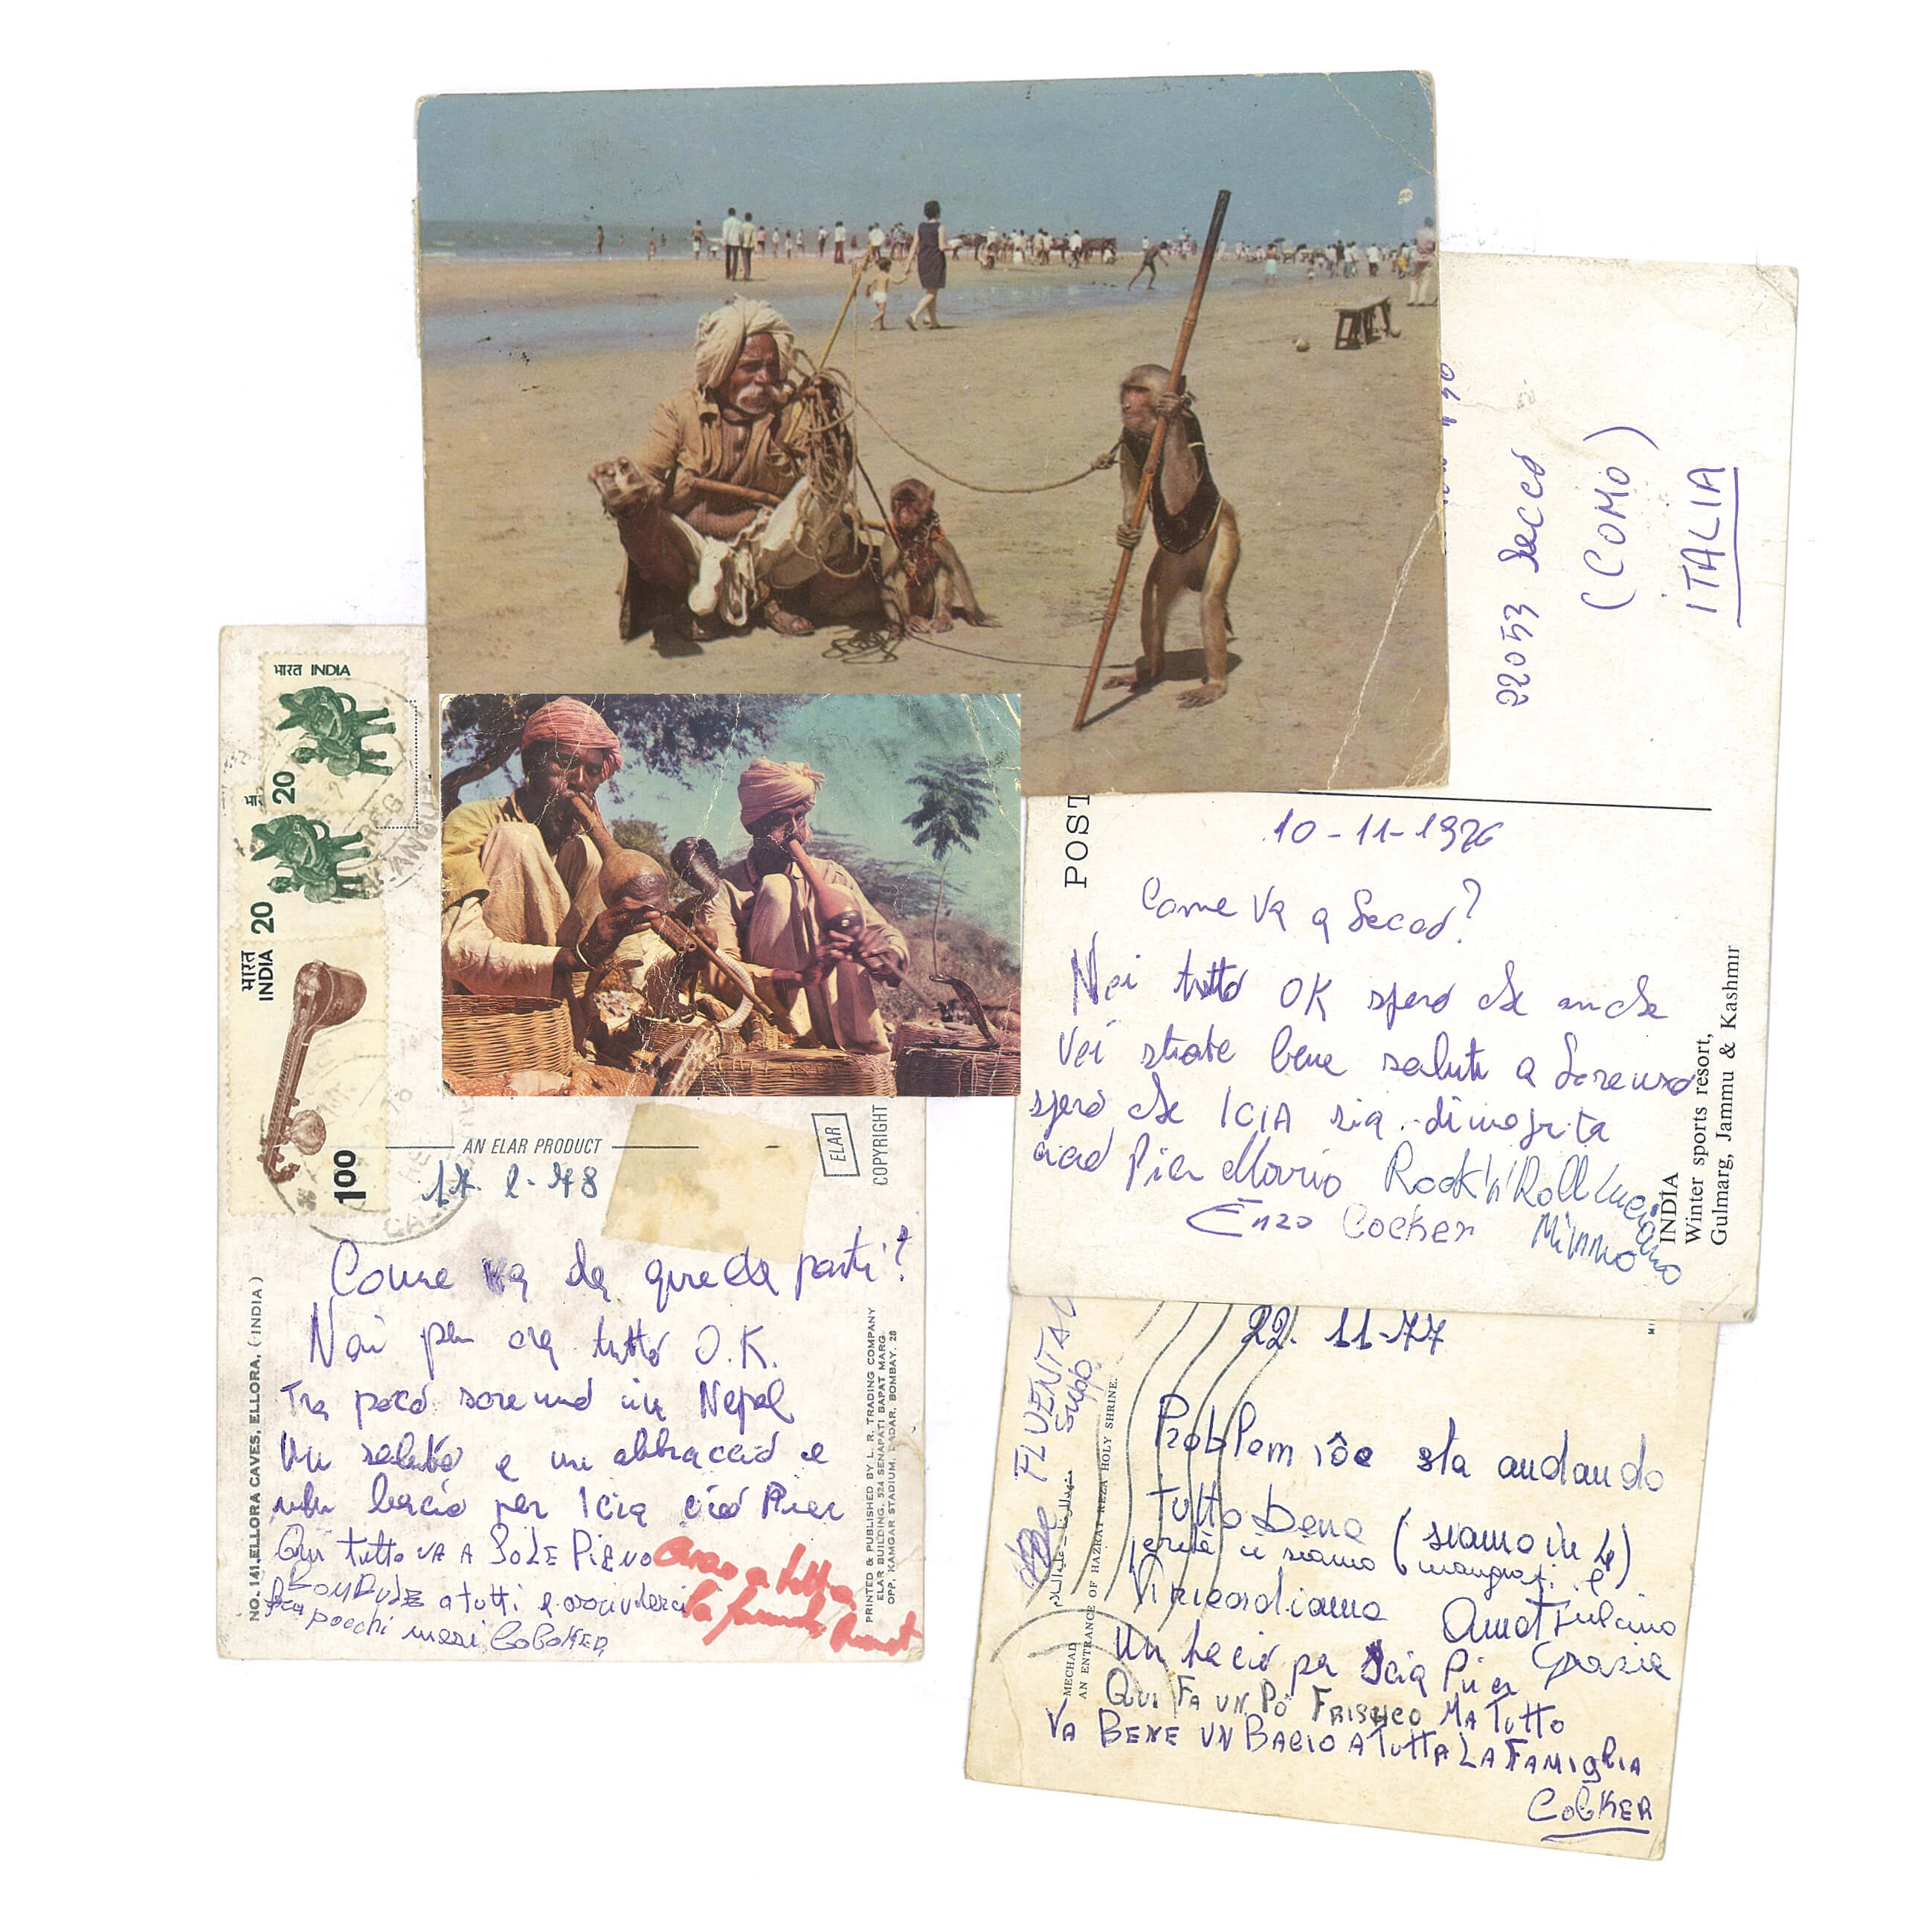 22053 Lecco
(COMO)
ITALIA
POST
10-11-1976
Come va a Lecco?
Noi tutto OK spero che anche
Voi state bene saluti a Lorenzo
spero che ICIA sia dimagrita
ciao Pier Mario Rock'n'Roll Luciano
Enzo Cocker Mimmo
INDIA
Winter sports resort,
Gulmarg, Jammu & Kashmir
भारत INDIA
20
20
भारत
INDIA
1.00
AN ELAR PRODUCT
ELAR
COPYRIGHT
17-2-78
Come va da quelle parti?
Noi per ora tutto O.K.
Tra poco saremo in Nepal
Un saluto e un abbraccio e
un bacio per Icia ciao Pier
Qui tutto va a SOLE PIENO
a tutti e arrivederci
fra pochi mesi CoCKER
Ciao a tutta
la famiglia
NO. 141. ELLORA CAVES, ELLORA, (INDIA)
PRINTED & PUBLISHED BY L. R. TRADING COMPANY
ELAR BUILDING, 524 SENAPATI BAPAT MARG
OPP. KAMGAR STADIUM, DADAR, BOMBAY. 28
22-11-77
sta andando
tutto bene (siamo in 4)
perché ci siamo
Vi ricordiamo
Un bacio per Icia Pier Grazia
QUI FA UN PO FRISHCO MA TUTTO
VA BENE UN BACIO A TUTTA LA FAMIGLIA
COCKER
MECHAD
AN ENTRANCE OF HAZRAT REZA HOLY SHRINE.